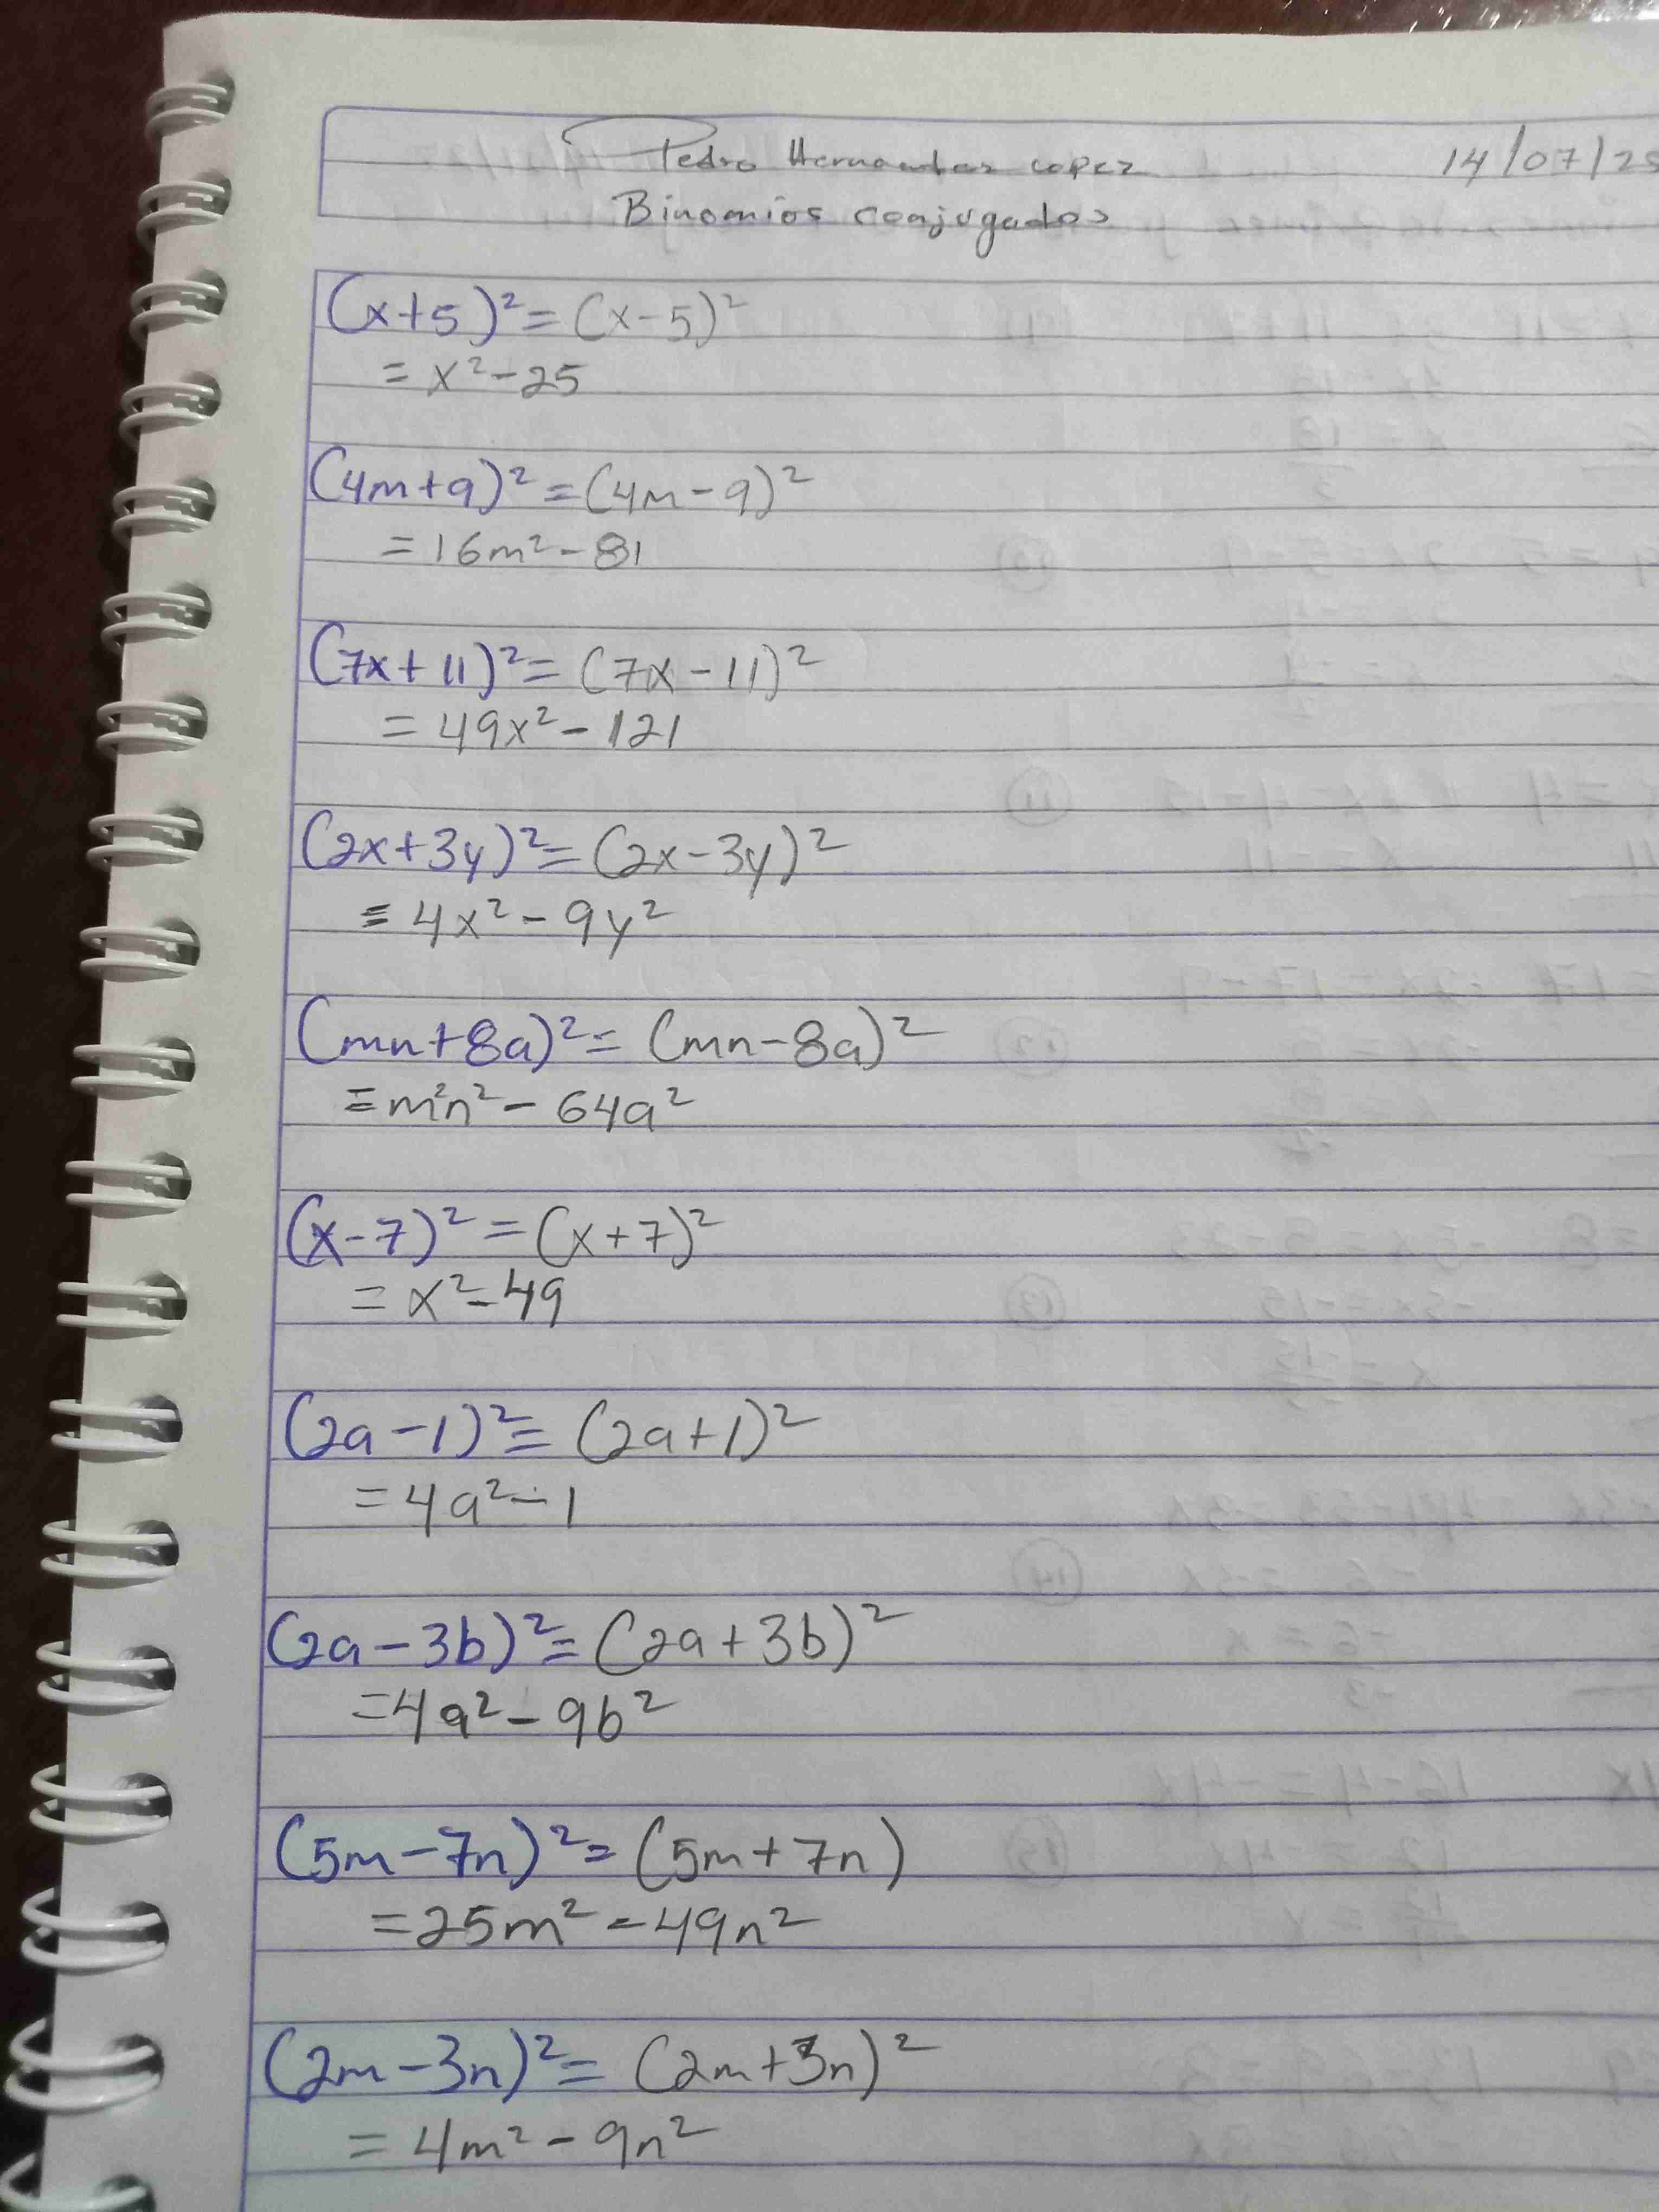 Pedro Hernandez Lopez 14/07/25
Binomios conjugados
(x+5)²=(x-5)²
= x²-25
(4m+9)²=(4m-9)²
=16m²-81
(7x+11)²=(7x-11)²
= 49x²-121
(2x+3y)²=(2x-3y)²
= 4x²-9y²
(mn+8a)²=(mn-8a)²
=m²n²-64a²
(x-7)²=(x+7)²
= x²-49
(2a-1)²=(2a+1)²
=4a²-1
(2a-3b)²=(2a+3b)²
=4a²-9b²
(5m-7n)²=(5m+7n)
=25m²-49n²
(2m-3n)²=(2m+3n)²
= 4m²-9n²